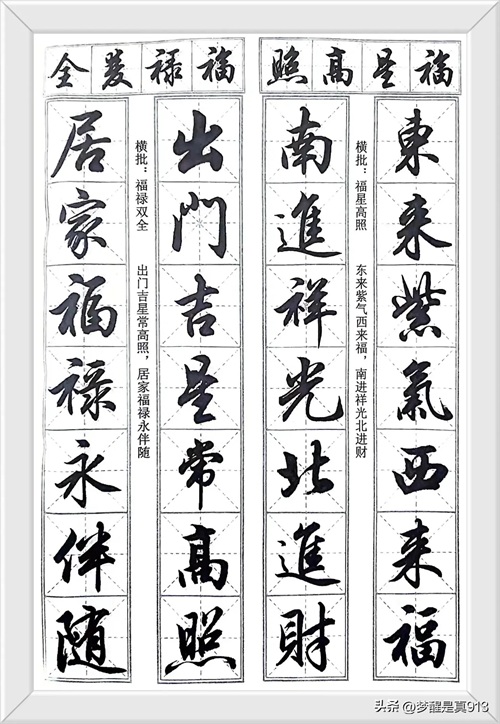 福星高照
東来紫氣西来福
横批：福星高照
东来紫气西来福，南进祥光北进财
南進祥光北進財
福禄双全
出門吉星常高照
横批：福禄双全
出门吉星常高照，居家福禄永伴随
居家福禄永伴随
头条 @梦醒是真913